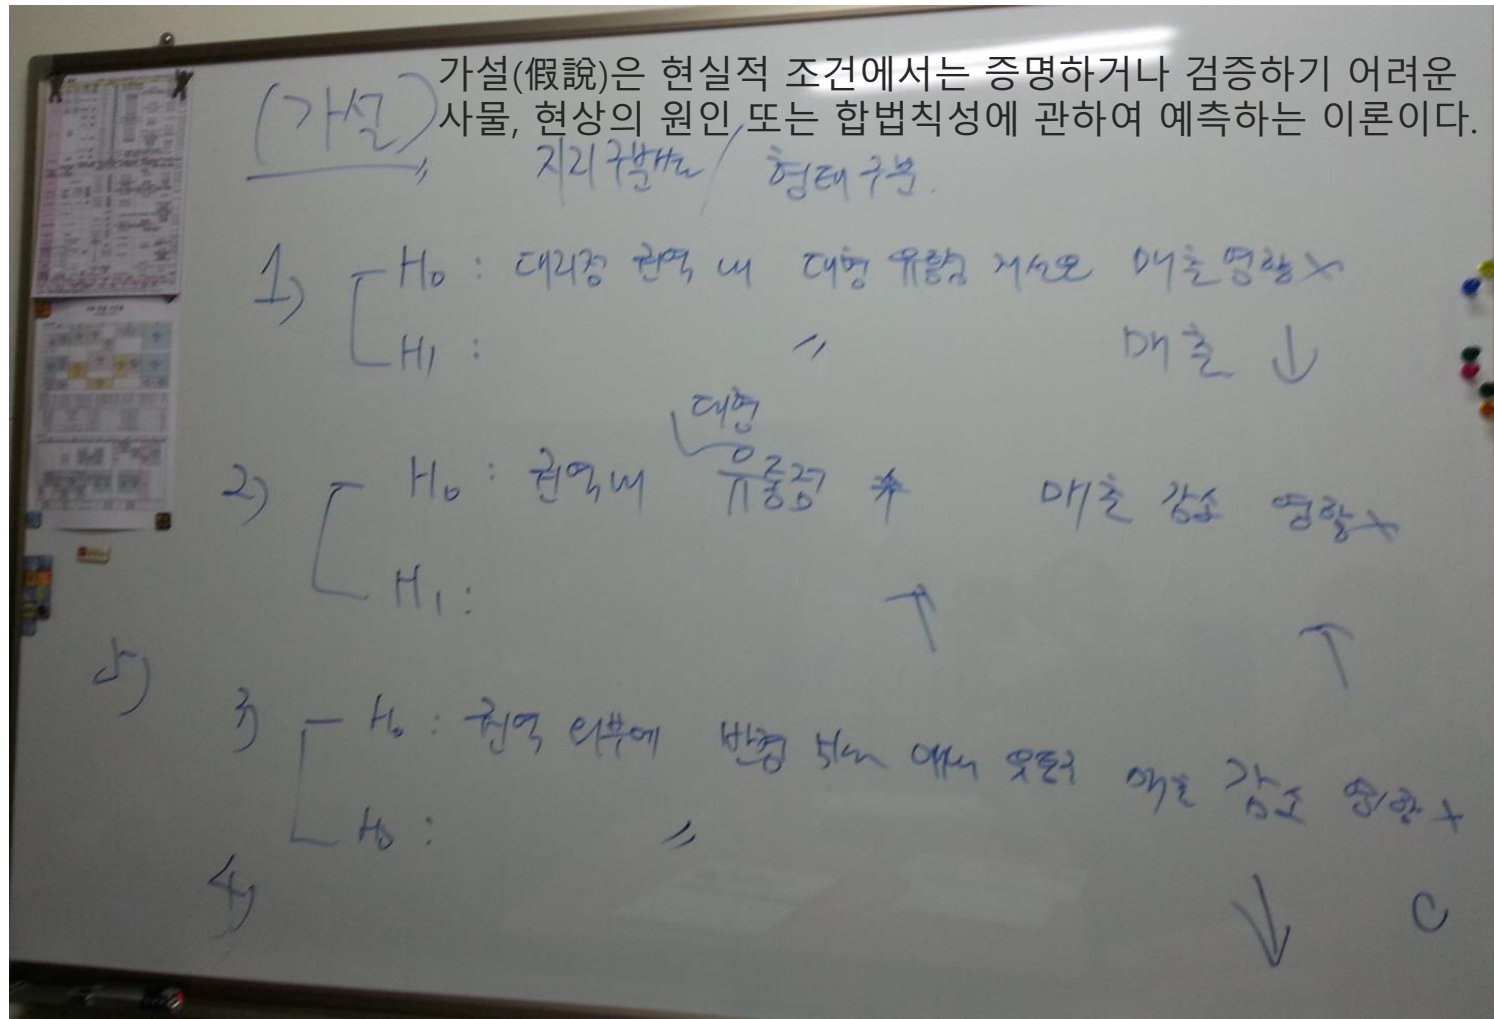 가설(假說)은 현실적 조건에서는 증명하거나 검증하기 어려운
사물, 현상의 원인 또는 합법칙성에 관하여 예측하는 이론이다.
(가설)
지리구분 / 형태구분.
1) H₀ : 대리점 권역 내 대형 유통점 매출영향 X
H₁ : 〃 매출 ↓
대형
2) H₀ : 권역내 유통점 매출 감소 영향 X
H₁ : ↑ ↑
5)
3) H₀ : 권역 외부에 반경 매출 감소 영향 X
H₀ : 〃 ↓
4)